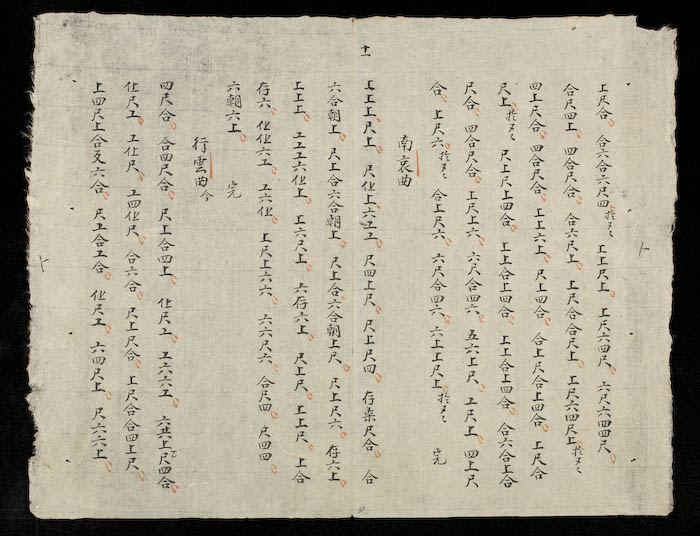 十一
上尺合 合六合六尺四 上上尺上 上尺六四尺 六尺六四四尺
合尺四上 四合尺合 合六尺上 上尺合合尺上 上尺六四尺上
四上尺合 四合尺合 上上六上 尺上四合 合上尺合上四合 上尺合
尺上 尺上尺上四合 上上合上四合 上上合上四合 合六合上合
尺合 四合尺合 尺上上六 六尺合四六 五六上尺 工尺上 四上尺
合 上尺六 合上尺六 六尺合四六 六上上尺上 完
南哀曲
上上上尺上 尺仩上六工工 尺四上尺 尺上尺四 存柒尺合 合
六合朝上 尺上合六合朝上 尺上合六合朝上尺 尺上尺六 存六上
上上上 工工工六仩上 上六尺上 六存六上 尺上尺 上上尺 上合
存六 仩仩六工 工六仩 上尺上六六 六六尺六 合尺四 尺四四
六朝六上 完
行雲曲 今
四尺合 合四尺合 尺上合四上 仩尺工 工六六工 六五上尺四合
仩尺工 工仩尺 工四仩尺 合六合 尺上尺合 上尺合合四上尺
上四尺上合 六合 尺工合工合 仩尺工 六四尺上 尺六六上